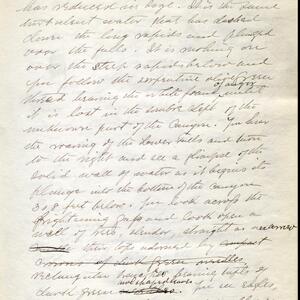 has reduced in size. It is the same
turbulent water that has dashed
down the long rapids and plunged
over the falls. It is nothing now
over the steep rapids below and
you follow the serpentine olive green
thread braiding the white foam of anger until
it is lost in the sombre depth of the
unknown part of the Canyon. You hear
the roaring of the Lower Falls and turn
to the right and see a glimpse of the
solid wall of water as it begins its
plunge into the bottom of the canyon
308 feet below. You look across the
frightening gap and look upon a
wall of trees, slender, straight as an arrow
their tops adorned by
of dark green needles.
rectangular bearing tufts of
dark green You see Eagles,